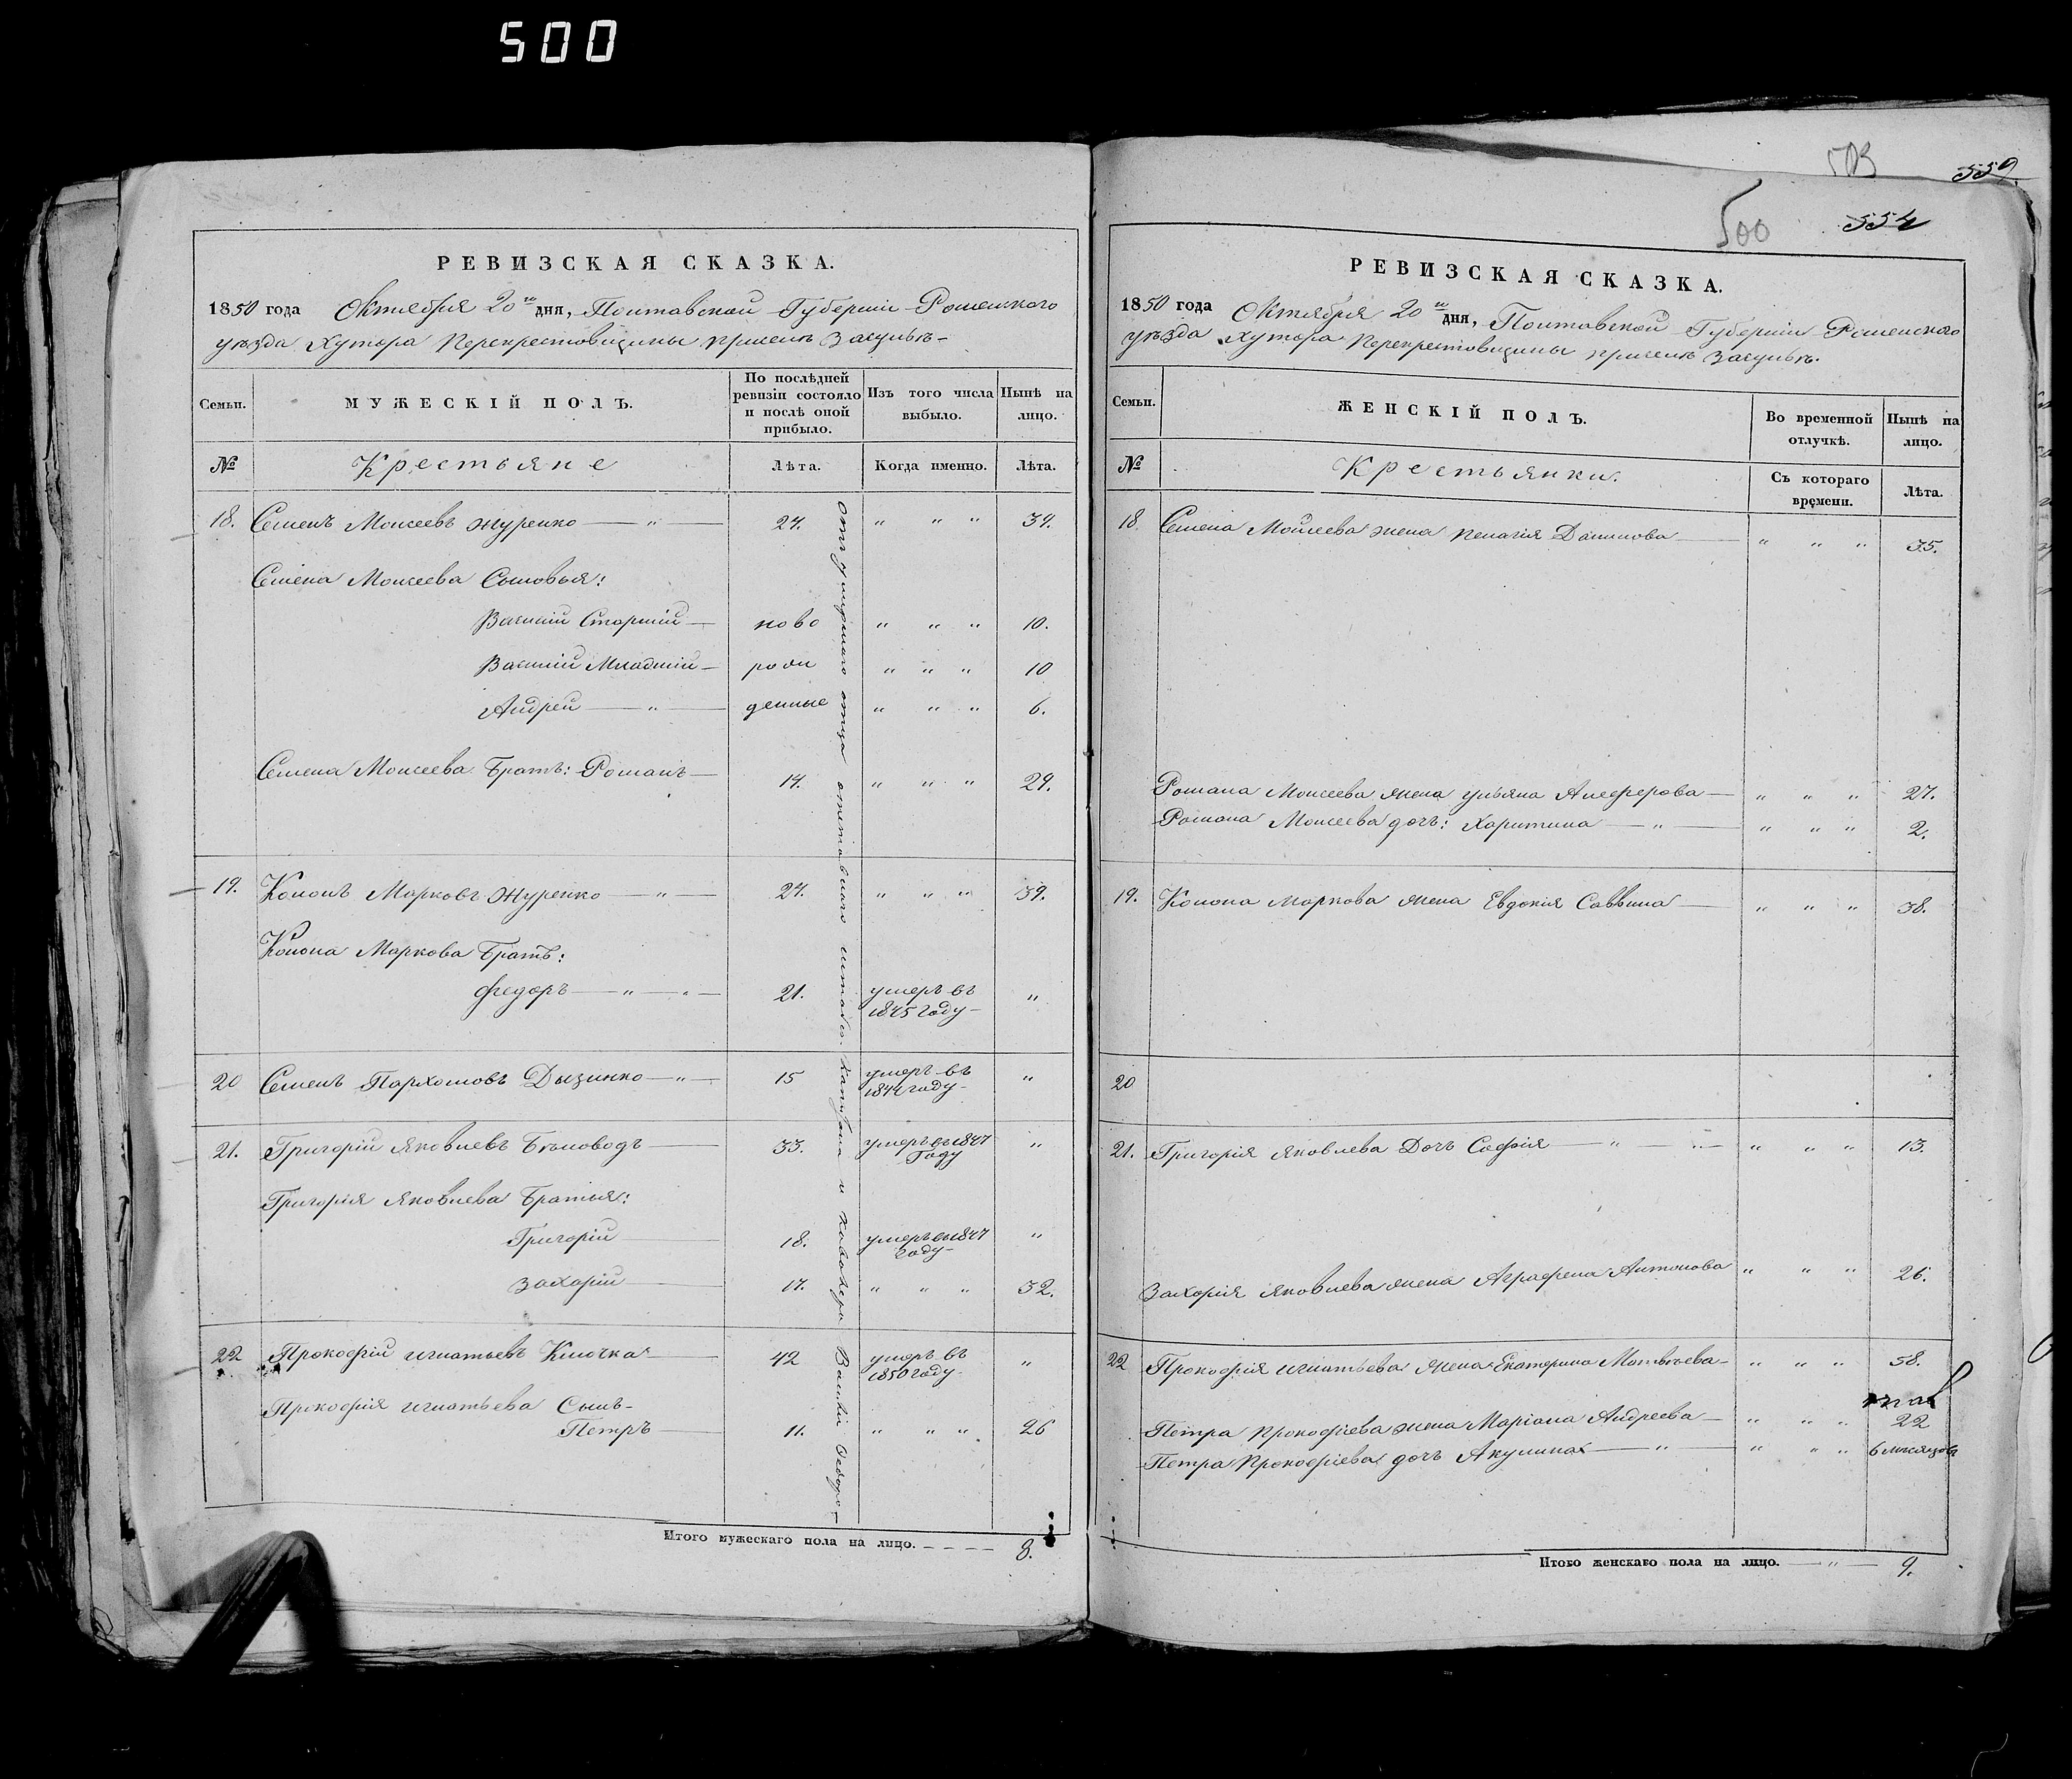 500
503
559.
500
554
РЕВИЗСКАЯ СКАЗКА.
1850 года Октября 20го дня, Полтавской Губерніи Роменского
уѣзда Хутора Перекрестовщины при селѣ Засульѣ
Семьи.
МУЖЕСКІЙ ПОЛЪ.
По послѣдней
ревизіи состояло
и послѣ оной
прибыло.
Изъ того числа
выбыло.
Нынѣ на
лицо.
№
Крестьяне
Лѣта.
Когда именно.
Лѣта.
18. Семенъ Моисеевъ Журенко — " — 24. " " " 34.
Семена Моисеева Сыновья:
Василій Старшій — ново " " " 10.
Василій Младшій — рож " " " 10
Андрей — " — денные " " " 6.
Семена Моисеева Братъ: Романъ — 14. " " " 24.
19. Кононъ Марковъ Журенко — " — 24. " " " 39.
Конона Маркова Братъ:
Федоръ — " — " — 21. умеръ въ "
1845 году
20 Семенъ Пархомовъ Дызинко — " — 15 умеръ въ "
1844 году
21. Григорій Яковлевъ Бѣловодъ — 33. умеръ въ 1847 "
Году
Григорія Яковлева Братья:
Григорій — 18. умеръ въ 1847 "
году
Захарій — 17. " " " 32.
22 Прокофій Игнатьевъ Клочка — 42 умеръ въ "
1850 году
Прокофія Игнатьева Сынъ
Петръ — 11. " " " 26
Итого мужескаго пола на лицо. 8.
отъ умершаго отца отставнаго штабсъ Капитана и Кавалера Василія
РЕВИЗСКАЯ СКАЗКА.
1850 года Октября 20го дня, Полтавской Губерніи Роменского
уѣзда Хутора Перекрестовщины при селѣ Засульѣ.
Семьи.
ЖЕНСКІЙ ПОЛЪ.
Во временной
отлучкѣ.
Нынѣ на
лицо.
№
Крестьянки.
Съ котораго
времени.
Лѣта.
18 Семена Мойсеева жена Пелагія Данилова — " " " 35.
Романа Моисеева жена Ульяна Алферова — " " " 27.
Романа Моисеева дочь: Харитина — " — " " " 2.
19. Конона Маркова жена Евдокія Саввина — " " " 38.
20
21. Григорія Яковлева Дочь Софія — " " — " " " 13.
Захарія Яковлева жена Аграфена Антонова " " " 26.
22 Прокофія Игнатьева жена Екатерина Матвѣева — " " " 58.
Петра Прокофіева жена Маріана Андреева — " " " 22
Петра Прокофіева дочь Акулина — " — " " " 6 мѣсяцовъ
Итого женскаго пола на лицо. — " — 9.